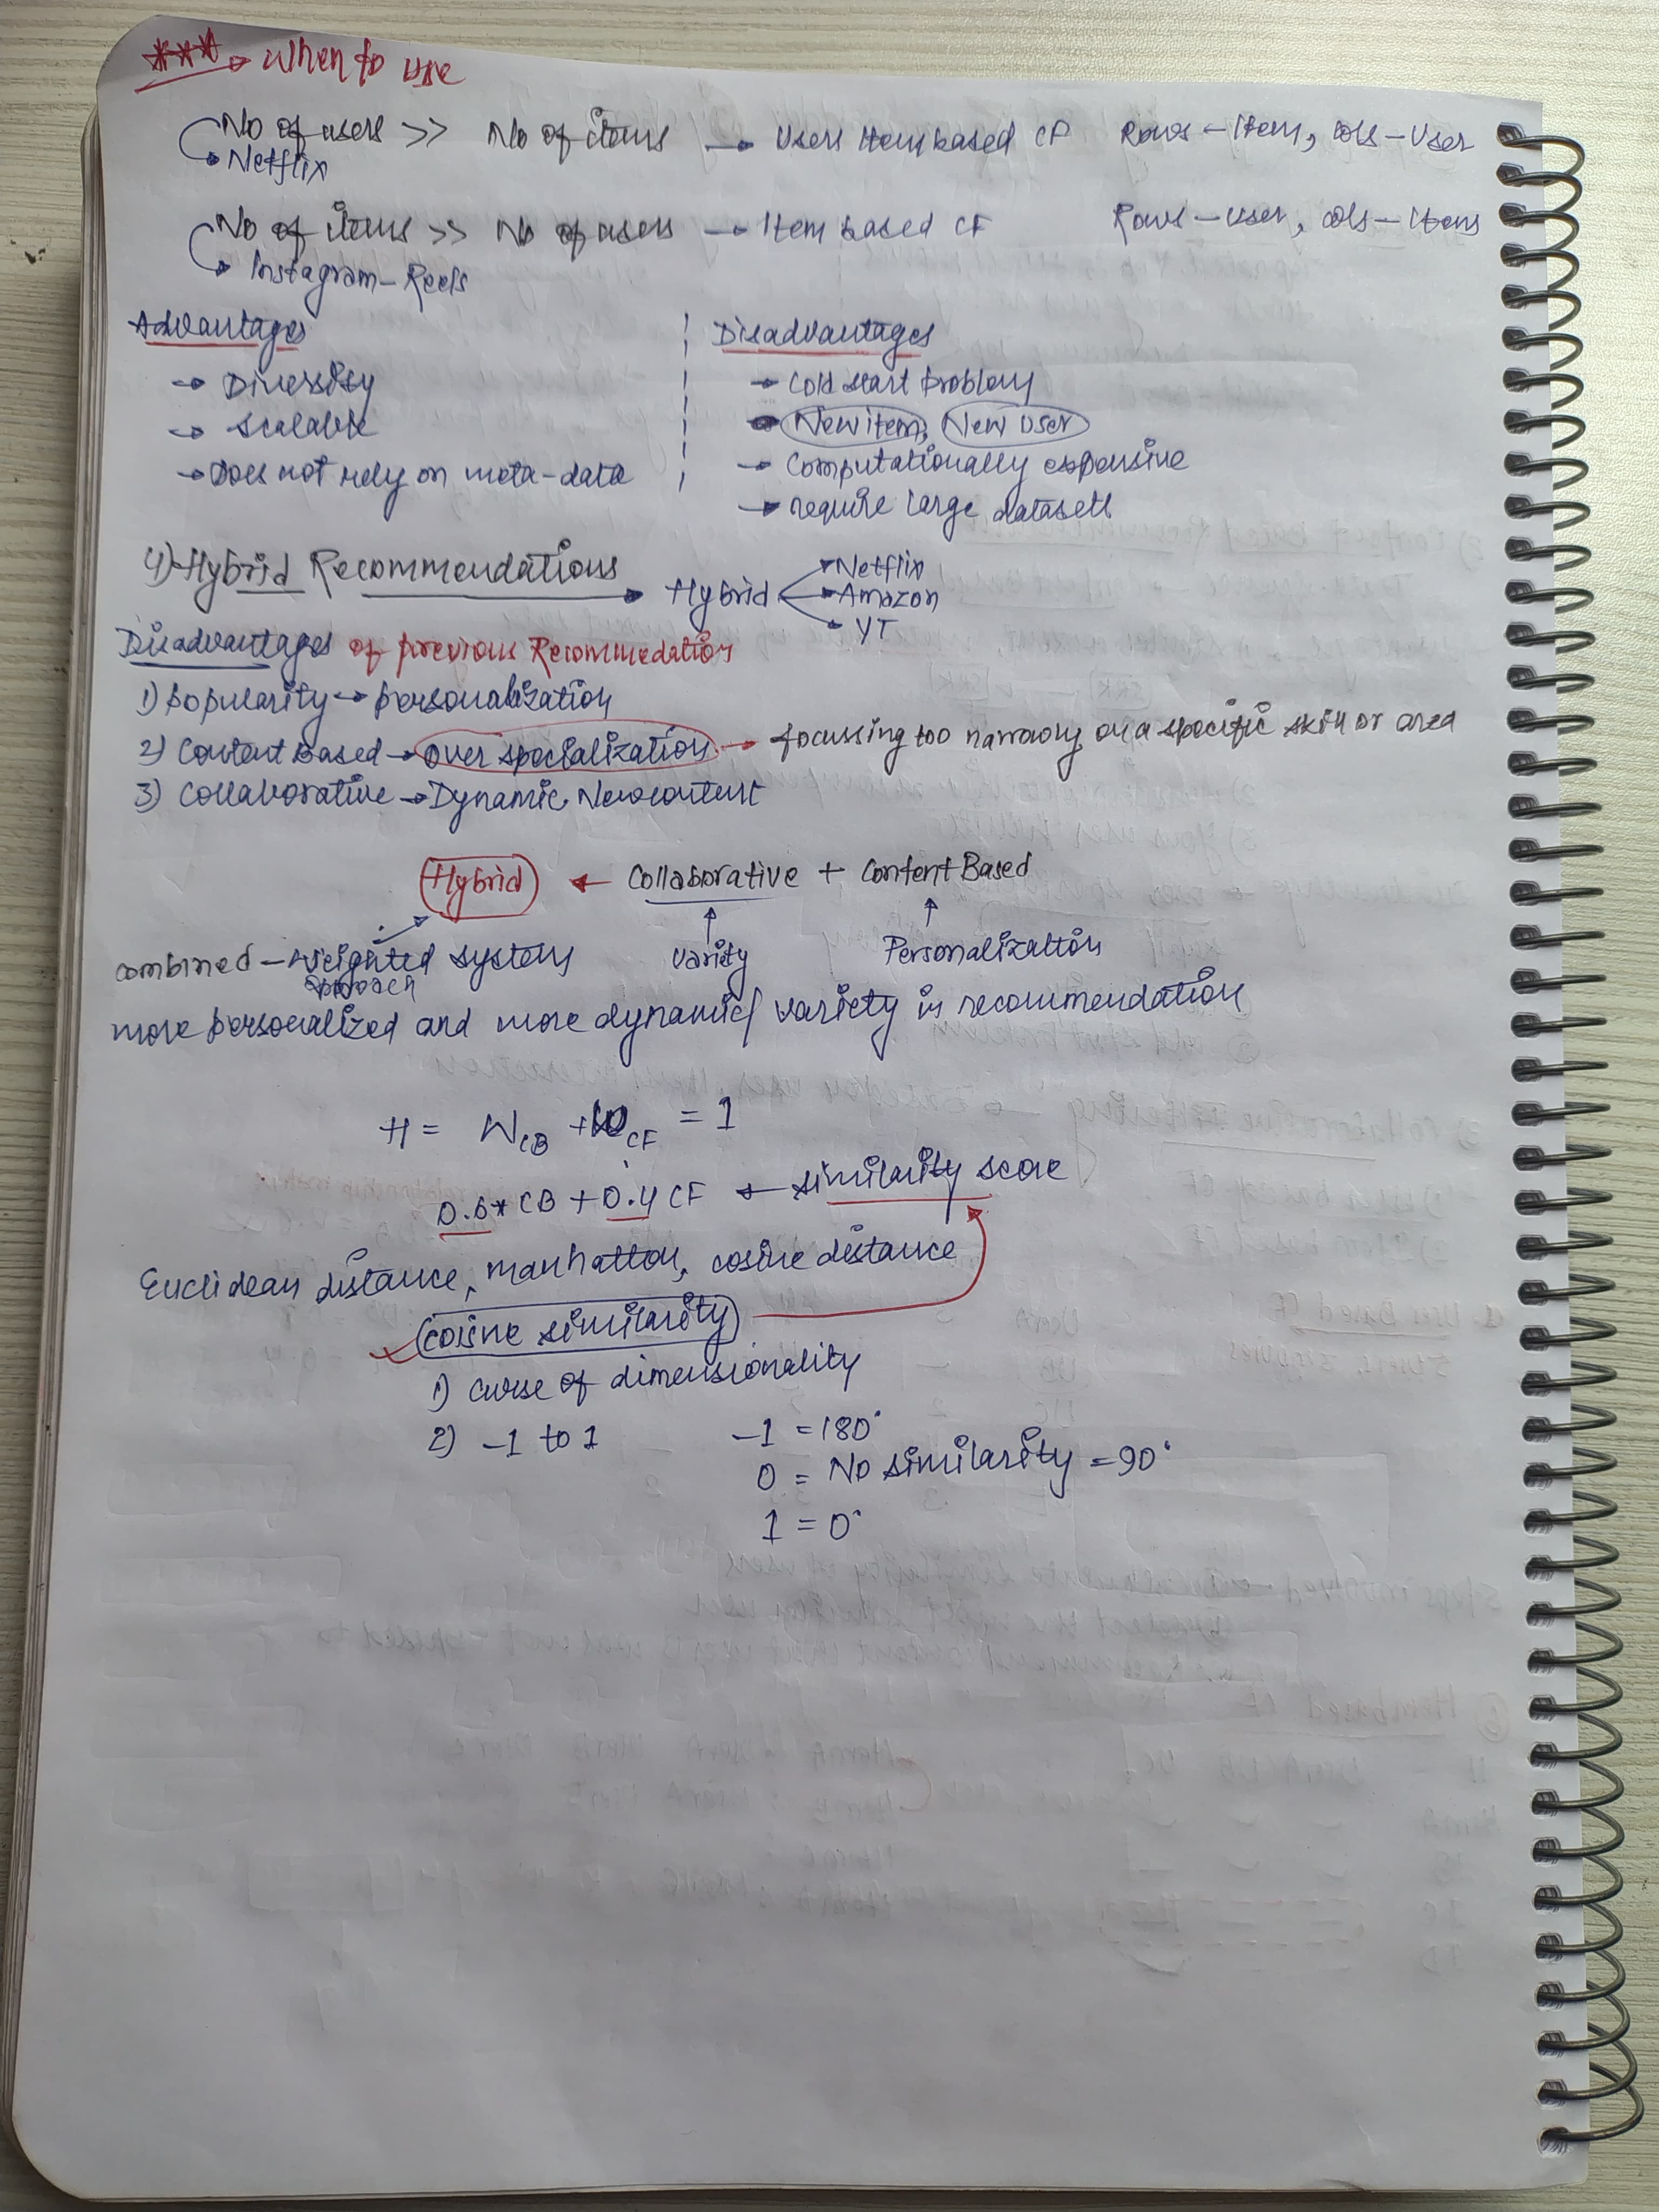 *** → When to use
No of users >> No of items → Users Item based CF Rows - Item, cols - User
→ Netflix
No of items >> No of users → Item based CF Rows - User, cols - Items
→ Instagram - Reels
Advantages
→ Diversity
→ scalable
→ Does not rely on meta-data
Disadvantages
→ Cold start problem
→ New item, New user
→ Computationally expensive
→ require large datasets
4) Hybrid Recommendations → Hybrid
→ Netflix
→ Amazon
→ YT
Disadvantages of previous Recommedation
1) popularity → personalization
2) Content Based → over specialization → focussing too narrowly on a specific skill or area
3) Collaborative → Dynamic New content
Hybrid ← Collaborative + Content Based
combined - Weighted system Varity Personalization
approach
more personalized and more dynamic/ variety in recommendation
H = W_CB + W_CF = 1
0.6 * CB + 0.4 CF ← similarity score
Euclidean distance, manhatton, cosine distance
cosine similarity
1) curse of dimensionality
2) -1 to 1 -1 = 180°
0 = No similarity = 90°
1 = 0°